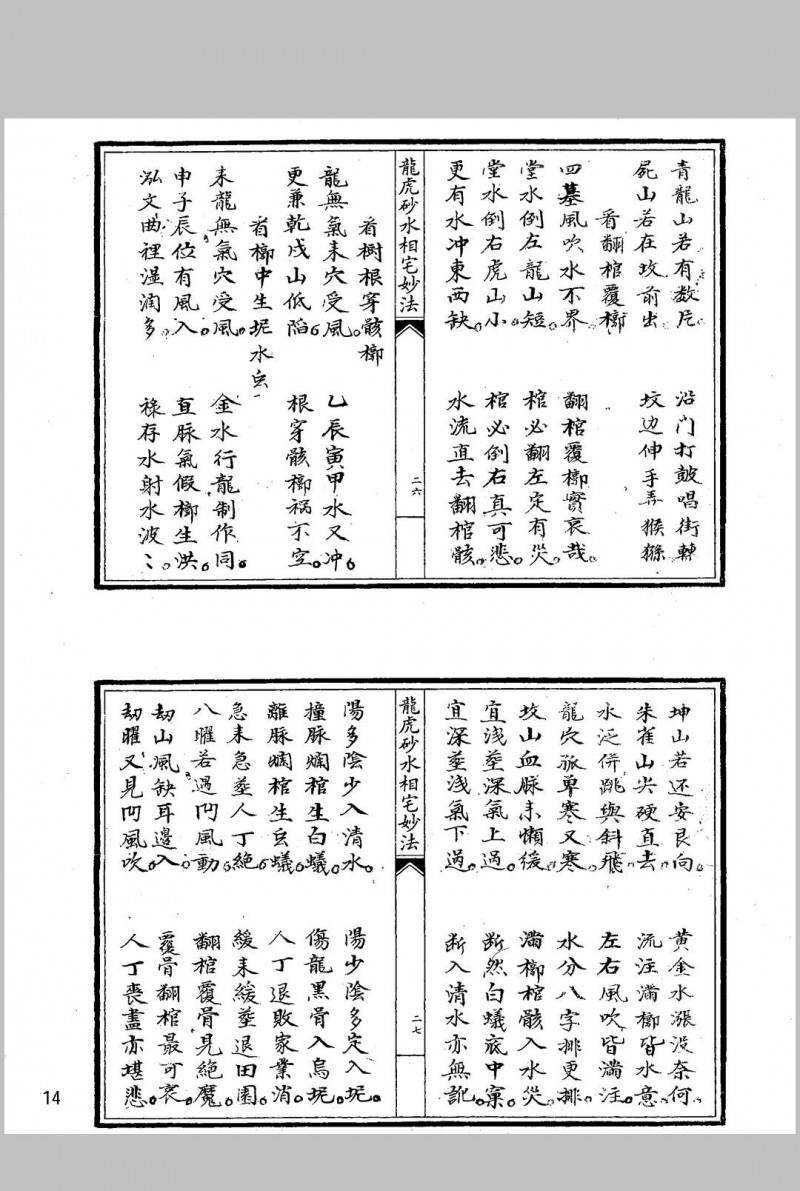 青龍山若有数片。 沿门打鼓唱街轉
屍山若在坟前出。 坟边伸手弄猴猻。
看翻棺覆槨
四墓風吹水不界。 翻棺覆槨實哀哉。
堂水倒左龍山短。 棺必翻左定有災。
堂水倒右虎山小。 棺必倒右真可悲。
更有水冲東西缺。 水流直去翻棺骸。
龍虎砂水相宅妙法
二六
看樹根穿骸槨
龍無氣未穴受風。 乙辰寅甲水又冲。
更兼乾戌山低陷。 根穿骸槨祸不空。
看槨中生坭水
耒龍無氣穴受風。 金水行龍制作同。
申子辰位有風入。 直脉氣假槨生洪。
泓文曲裡湿润多。 禄存水射水波〻。
坤山若还安艮向。 黄金水漲没奈何。
朱雀山尖硬直去。 流注满槨皆水意。
水泛併跳與斜飛。 左右風吹皆满注。
龍穴孤單寒又寒。 水分八字排更排。
坟山血脉耒懒缓。 满槨棺骸入水災。
宜浅塟深氣上過。 断然白蟻底中窠。
宜深塟浅氣下過。 断入清水亦無訛。
龍虎砂水相宅妙法
二七
陽多陰少入清水。 陽少陰多定入坭。
撞脉爛棺生白蟻。 傷龍黑骨入烏坭。
離脉爛棺生虫蟻。 人丁退敗家業消。
急耒急塟人丁絶。 緩耒緩塟退田園。
八曜若遇凹風動。 翻棺覆骨見絶魔。
劫山風缺耳邊入。 覆骨翻棺最可哀。
劫曜又見凹風吹。 人丁喪盡亦堪悲。
14